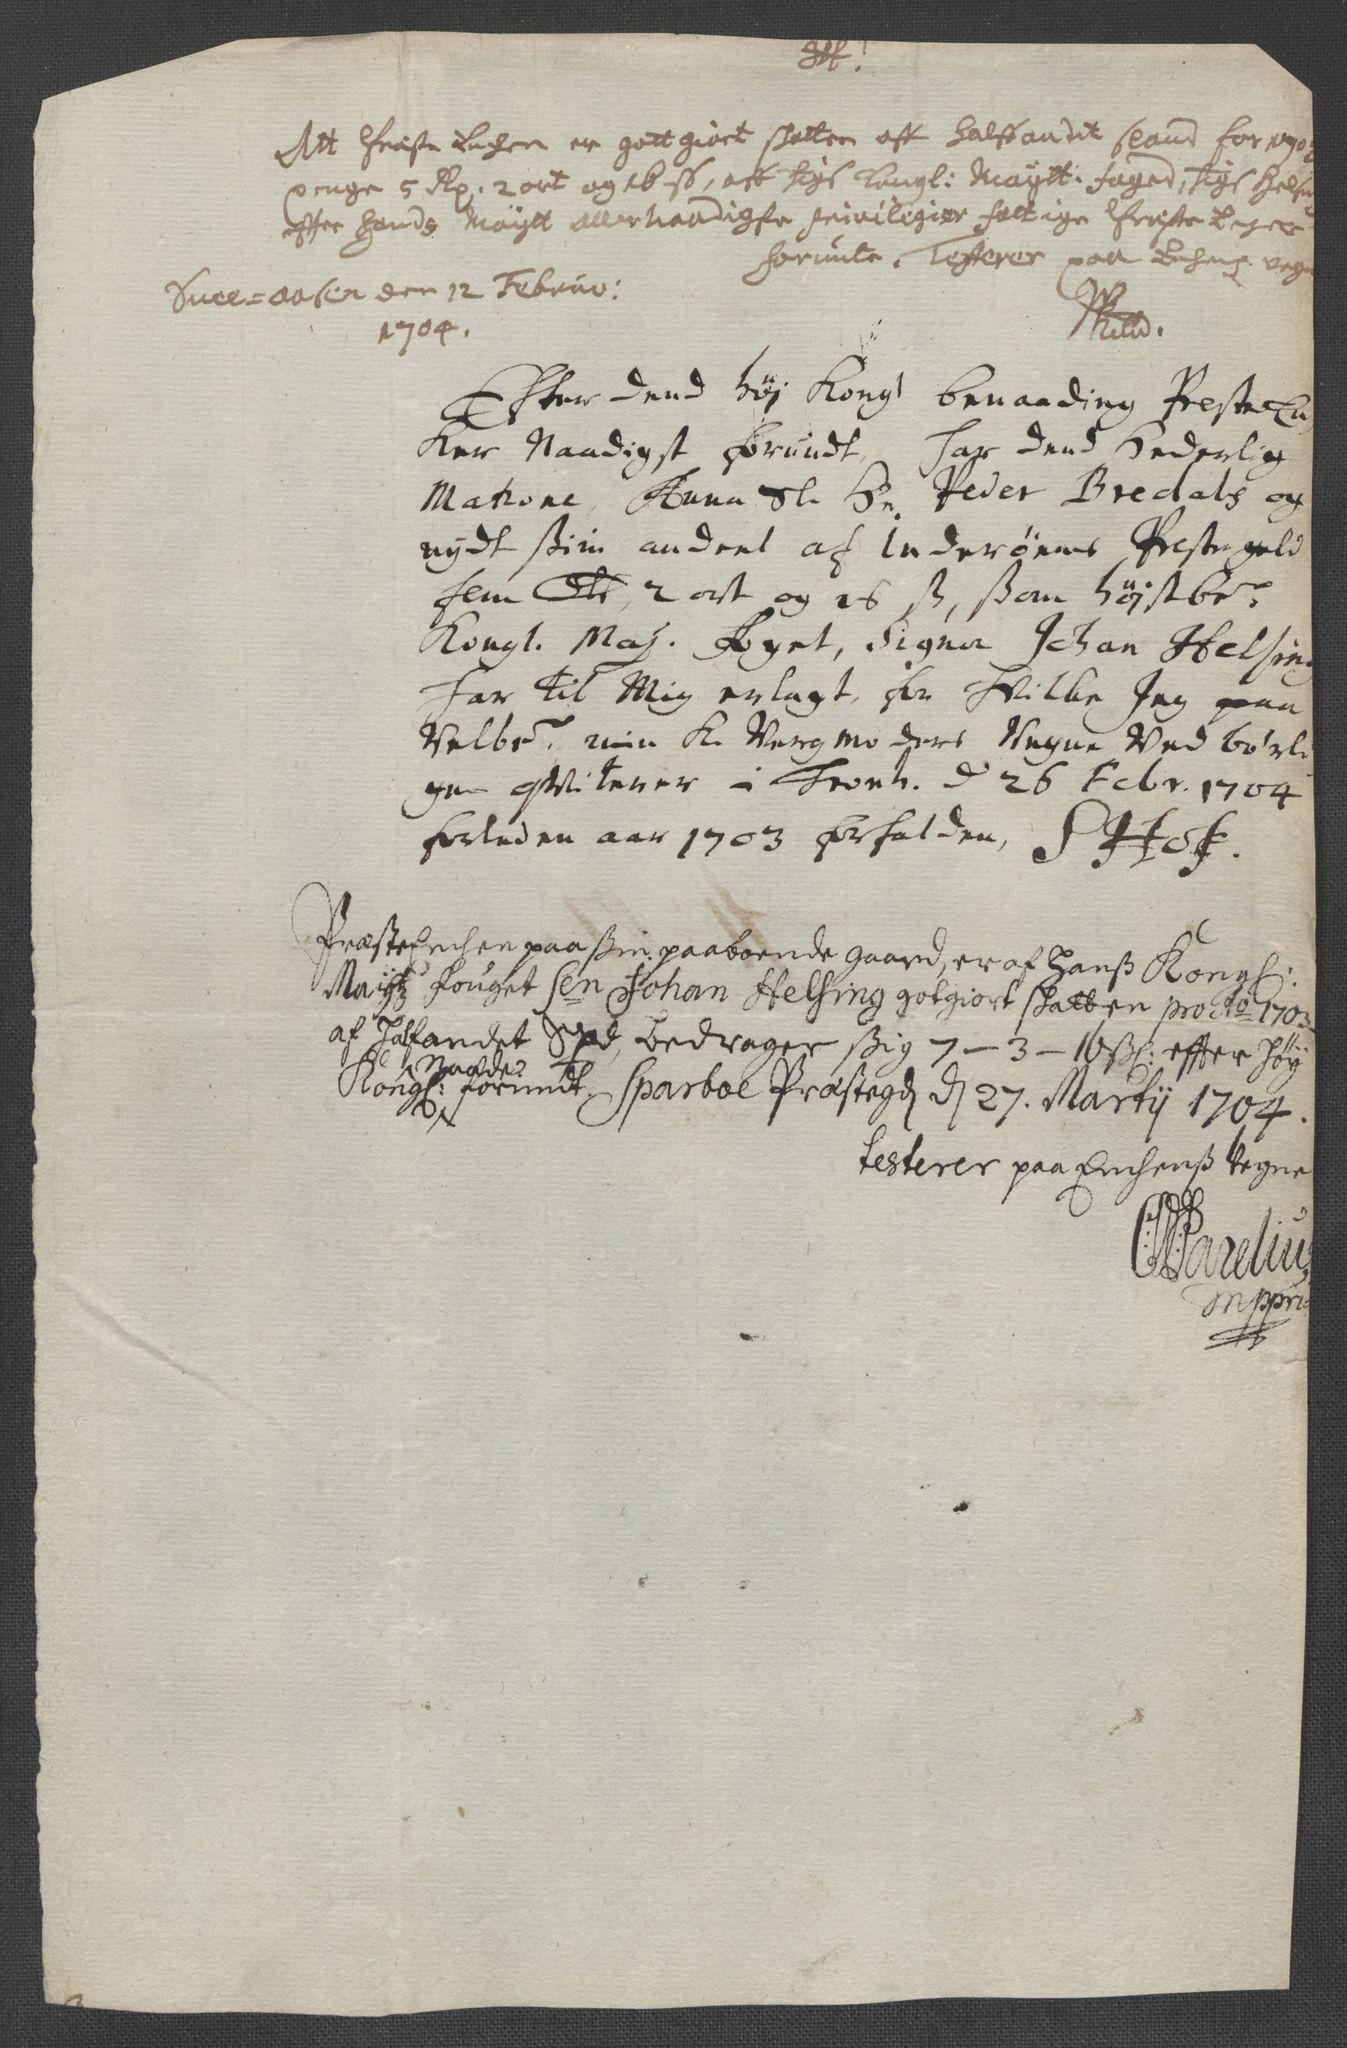 Att Preste Enchen er gott giort skatten aff halffandit spand for 1703
penge 5 Rd. 2 ort og 16 ss, aff hans Kongl: Maytt: faged,
effter hands Maytt allernaadigste privilegier fattige Preste Encher
forunte. Testerer paa Enchens vegne
Snee-aasen den 12 Februo:
1704.
Efter dend høj Kongl benaading Preste En
ker Naadigst forundt, har dend Hederlig
Matrone, Anna Sl. Hr. Peder Bredals og
nydt sin andeel af Inderöens Prestegield
fem Rdr, 2 ort og 16 ss, som höjstber.
Kongl. Maj. Foget, Signor Johan Helsing
har til Mig erlagt, for hvilke Jeg paa
Velber. min K. Vermoders Vegne Ved börli
gen qviterer i Tronh. d 26 Febr. 1704
forleden aar 1703 forfalden, S Hof.
Præste Enchen paa sin paaboende gaard, er af Hanß Kongl:
Maytz Fouget Sen Johan Helsing gotgiort skatten pro Ao 1703
af Halfandet Spd, bedrager sig 7-3-16 ß: effter Høy
Kongl: Naade forundt. Sparboe Præstegd d 27. Martij 1704.
testerer paa Enchenß Vegne
Parelius
mppria